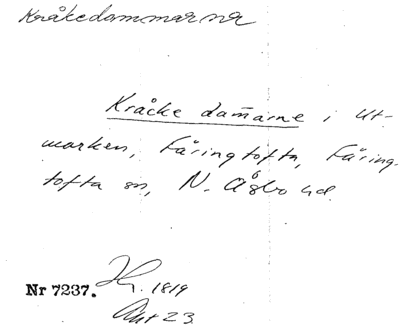 Kråkedammarna
Kråcke dam̄arne i Ut-
marken, Färingtofta, Färing-
tofta sn, N. Åsbo hd.
Nr 7237. H. 1819
Akt 23